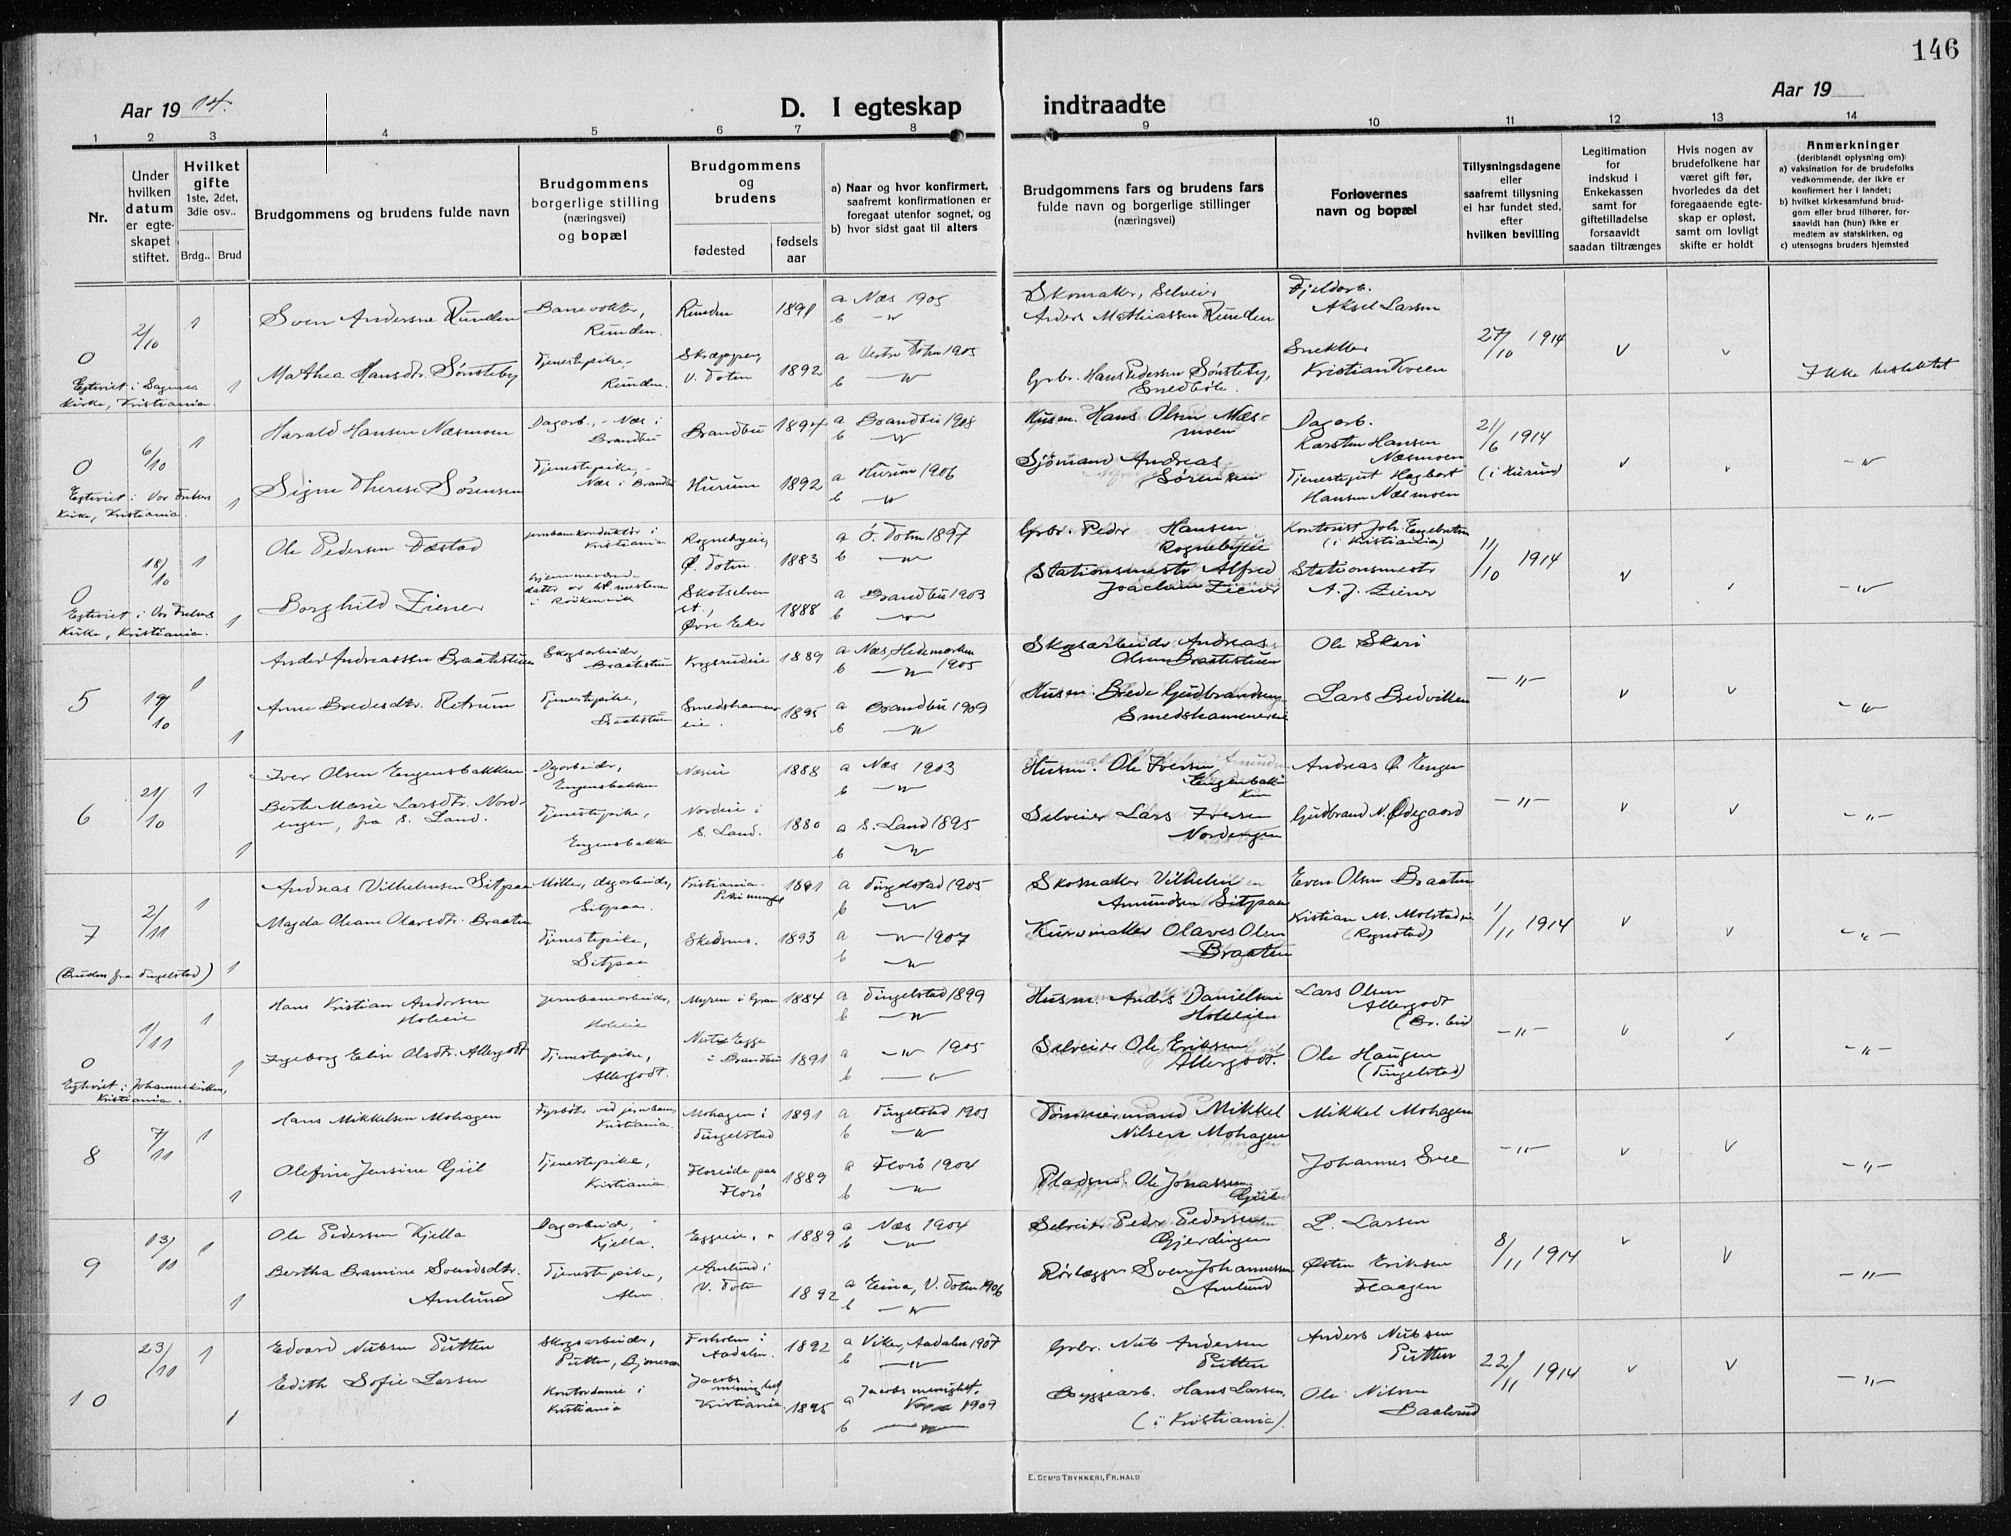 146
Aar 19 14.
D. I egteskap indtraadte
Aar 19
1 2 3 4 5 6 7 8 9 10 11 12 13 14
Nr.
Under hvilken datum er egte-skapet stiftet.
Hvilket gifte 1ste, 2det, 3die osv..
Brdg.. Brud
Brudgommens og brudens fulde navn
Brudgommens borgerlige stilling (næringsvei) og bopæl
Brudgommens og brudens
fødested
fødsels aar
a) Naar og hvor konfirmert, saafremt konfirmationen er foregaat utenfor sognet, og
b) hvor sidst gaat til alters
Brudgommens fars og brudens fars fulde navn og borgerlige stillinger (næringsvei)
Forlovernes navn og bopæl
Tillysningsdagene eller saafremt tillysning ei har fundet sted, efter hvilken bevilling
Legitimation for indskud i Enkekassen samt for giftetilladelse forsaavidt saadan tiltrænges
Hvis nogen av brudefolkene har været gift før, hvorledes da det foregaaende egte-skap er opløst, samt om lovligt skifte er holdt
Anmerkninger
(deriblandt oplysning om):
a) vaksination for de brudefolks vedkommende, der ikke er konfirmert her i landet;
b) hvilket kirkesamfund brud-gom eller brud tilhører, for-saavidt han (hun) ikke er medlem av statskirken, og
c) utensogns bruders hjemsted
0 2/10 1 Sven Andersen Runden Banevokter, Runden. Runden 1891 a Næs 1905 b —„— Skomaker, Selveier Anders Mathiassen Runden Fjeldarb. Aksel Larsen 27/10 1914 v v Ikke beslektet
1 Mathea Hansdtr. Sønsteby Tjenestepike, Runden. V. Toten 1892 a Vestre Toten 1905 b —„— Grbr. Hans Pedersen Sønsteby, Snekker Kristian Kveen
Egteviet i Sagenes Kirke, Kristiania.
0 6/10 1 Harald Hansen Næsmoen Dagarb., Næs i Brandbu Brandbu 1894 a Brandbu 1908 b —„— Husm. Hans Olsen Næs-moen Dagarb. Karsten Hansen Næsmoen 21/6 1914 (i Hurum) v v —„—
1 Signe Therese Sørensen Tjenestepike, Næs i Brandbu Hurum 1892 a Hurum 1906 b —„— Sjømand Andreas Sørensen Tjenestegut Hagbart Hansen Næsmoen
Egteviet i Vor Frelsers Kirke, Kristiania.
0 18/10 1 Ole Pedersen Dæstad Jernbanekonduktør i Kristiania Rognebyeie, Ø. Toten. 1883 a Ø. Toten 1897 b —„— Grbr. Peder Hansen Rognebyeie Kontorist Joh. Engebretsen (i Kristiania) 11/10 1914 v v —„—
1 Borghild Ziener Hjemmeværende datter av st.mesteren i Røikenvik Skotselven st., Øvre Eker 1888 a Brandbu 1903 b —„— Stationsmester Alfred Joachim Ziener Stationsmester A. J. Ziener
Egteviet i Vor Frelsers Kirke, Kristiania.
5 19/10 1 Anders Andreassen Braatestuen Skogsarbeider, Braatestuen Krogsrudeie 1889 a Næs, Hedemarken 1905 b —„— Skogsarbeider Andreas Olsen Braatestuen Ole Skarø —„— v v —„—
1 Anne Bredesdtr. Retrum Tjenestepike, Braatestuen Smedshammer eie. 1895 a Brandbu 1909 b —„— Husm. Brede Gudbrandsen Smedshammereie Lars Bredviken
6 21/10 1 Iver Olsen Engensbakken Dagarbeider, Engensbakken Næseie 1888 a Næs 1903 b —„— Husm. Ole Iversen Engenbakken Andreas O. Engen —„— v v —„—
1 Berte Marie Larsdtr. Nord-engen, fra S. Land. Tjenestepike, Engensbakken Nordeie i S. Land. 1880 a S. Land 1895 b —„— Selveier Lars Iversen Nordengen Gudbrand N. Ødegaard
7 2/11 1 Andreas Vilhelmsen Sitpaa Møller, dagarbeider, Sitpaa. Kristiania 1891 a Tingelstad 1905 b —„— Skomaker Vilhelm Amundsen Sitpaa Even Olsen Braaten 1/11 1914 v v —„—
1 Magda Oleane Olavsdtr. Braaten Tjenestepike, Sitpaa Skedsmo. 1893 a —„— 1907 b —„— Kurvmaker Olaves Olsen Braaten Kristian M. Molstad (Rognstad)
(Bruden fra Tingelstad)
0 1/11 1 Hans Kristian Andersen Holeeie Jernbanearbeider, Holeeie Myren i Gran 1884 a Tingelstad 1899 b —„— Husm. Anders Danielsen Holeeie Lars Olsen Allergodt (Br.bu) —„— v v —„—
1 Ingeborg Eline Olsdtr. Allergodt Tjenestepike, Allergodt. Nedre Egge i Brandbu 1891 a —„— 1905 b —„— Selveier Ole Eriksen Allergodt. Ole Haugen (Tingelstad)
Egteviet i Johanneskirken, Kristiania.
8 7/11 1 Hans Mikkelsen Mohagen Fyrbøter ved jernbanen, Kristiania. Mohagen i Tingelstad 1891 a Tingelstad 1905 b —„— Tømmermand Mikkel Nilsen Mohagen Mikkel Mohagen —„— v v —„—
1 Olefine Jensine Giil Tjenestepike, Kristiania. Floreide paa Florø 1889 a Florø 1904 b —„— Pladsm. Ole Jonassen Giil Johannes Svee
9 13/11 1 Ole Pedersen Kjella Dagarbeider, Kjella. Eggeie, 1889 a Næs 1904 b —„— Selveier Peder Pedersen Gjerdingen L. Larsen 8/11 1914 v v —„—
1 Bertha Bramine Svendsdtr. Amlund Tjenestepike, Alm. Amlund i V. Toten 1892 a Eina, V. Toten 1906 b —„— Rørlægger Sven Johannessen Amlund Østen Eriksen Haagen
10 23/11 1 Edvard Nubsen Putten Skogsarbeider, Putten, Bjoneroa Forholm i Aadalen. 1892 a Viker, Aadalen 1907 b —„— Grbr. Nub Andersen Putten Anders Nubsen Putten 22/11 1914 v v —„—
1 Edith Sofie Larsen Kontordame i Kristiania Jacobs menighet Kristiania. 1895 a Jacobs menighet, 1909 b —„— Byggearb. Hans Larsen, (i Kristiania). Ole Nilsen Baalerud
E. SEM'S TRYKKERI, FR.HALD